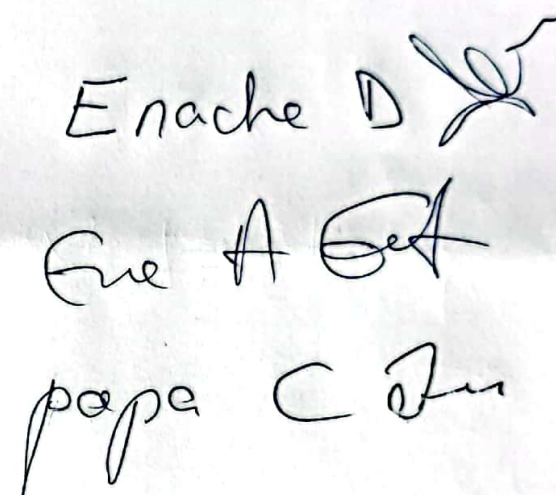 Enache D
Ene A
papa C